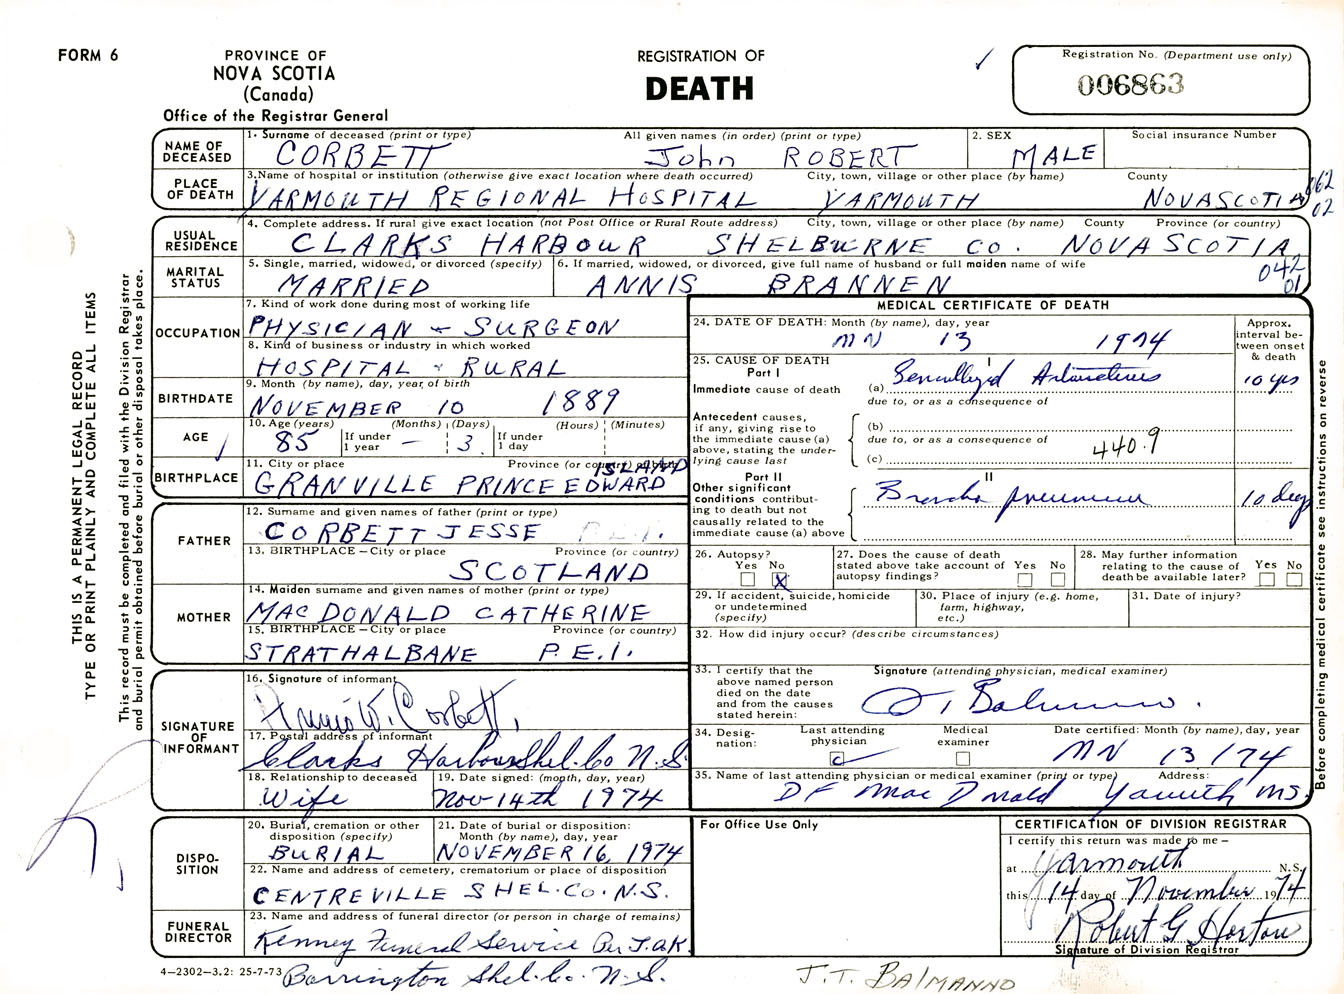 FORM 6
PROVINCE OF
NOVA SCOTIA
(Canada)
Office of the Registrar General
REGISTRATION OF
DEATH
Registration No. (Department use only)
006863
THIS IS A PERMANENT LEGAL RECORD
TYPE OR PRINT PLAINLY AND COMPLETE ALL ITEMS
This record must be completed and filed with the Division Registrar
and burial permit obtained before burial or other disposal takes place.
NAME OF DECEASED
1. Surname of deceased (print or type) All given names (in order) (print or type) 2. SEX Social insurance Number
CORBETT John ROBERT MALE
PLACE OF DEATH
3. Name of hospital or institution (otherwise give exact location where death occurred) City, town, village or other place (by name) County
YARMOUTH REGIONAL HOSPITAL YARMOUTH NOVASCOTIA
062
02
USUAL RESIDENCE
4. Complete address. If rural give exact location (not Post Office or Rural Route address) City, town, village or other place (by name) County Province (or country)
CLARKS HARBOUR SHELBURNE CO. NOVA SCOTIA
042
01
MARITAL STATUS
5. Single, married, widowed, or divorced (specify) 6. If married, widowed, or divorced, give full name of husband or full maiden name of wife
MARRIED ANNIS BRANNEN
OCCUPATION
7. Kind of work done during most of working life
PHYSICIAN - SURGEON
8. Kind of business or industry in which worked
HOSPITAL - RURAL
BIRTHDATE
9. Month (by name), day, year, of birth
NOVEMBER 10 1889
AGE
10. Age (years) (Months) (Days) (Hours) (Minutes)
85 If under 1 year — 3 If under 1 day
BIRTHPLACE
11. City or place Province (or country) of birth
GRANVILLE PRINCE EDWARD ISLAND
FATHER
12. Surname and given names of father (print or type)
CORBETT JESSE P.E.I.
13. BIRTHPLACE – City or place Province (or country)
SCOTLAND
MOTHER
14. Maiden surname and given names of mother (print or type)
MACDONALD CATHERINE
15. BIRTHPLACE – City or place Province (or country)
STRATHALBANE P.E.I.
SIGNATURE OF INFORMANT
16. Signature of informant
Annis W. Corbett,
17. Postal address of informant
Clarks Harbour Shel. Co N.S
18. Relationship to deceased 19. Date signed: (month, day, year)
Wife Nov 14th 1974
DISPOSITION
20. Burial, cremation or other disposition (specify) 21. Date of burial or disposition: Month (by name), day, year
BURIAL NOVEMBER 16, 1974
22. Name and address of cemetery, crematorium or place of disposition
CENTREVILLE SHEL.CO.N.S.
FUNERAL DIRECTOR
23. Name and address of funeral director (or person in charge of remains)
Kenney Funeral Service Per J.a.K.
Barrington Shel. Co. N.S.
4–2302–3.2: 25-7-73
MEDICAL CERTIFICATE OF DEATH
24. DATE OF DEATH: Month (by name), day, year
13 1974
Approx. interval between onset & death
25. CAUSE OF DEATH
Part I
I
Immediate cause of death
(a) 10 yrs
due to, or as a consequence of
Antecedent causes, if any, giving rise to the immediate cause (a) above, stating the underlying cause last
(b)
due to, or as a consequence of
440.9
(c)
Part II
II
Other significant conditions contributing to death but not causally related to the immediate cause (a) above
Broncho pneumonia 10 days
26. Autopsy? Yes No X
27. Does the cause of death stated above take account of autopsy findings? Yes No
28. May further information relating to the cause of death be available later? Yes No
29. If accident, suicide, homicide or undetermined (specify)
30. Place of injury (e.g. home, farm, highway, etc.)
31. Date of injury?
32. How did injury occur? (describe circumstances)
33. I certify that the above named person died on the date and from the causes stated herein:
Signature (attending physician, medical examiner)
J T Balmanno.
34. Designation: Last attending physician Medical examiner Date certified: Month (by name), day, year
13/74
35. Name of last attending physician or medical examiner (print or type) Address:
DF MacDonald Yarmouth NS.
Before completing medical certificate see instructions on reverse
For Office Use Only
CERTIFICATION OF DIVISION REGISTRAR
I certify this return was made to me –
at Yarmouth N.S.
this 14 day of November 1974
Robert G Horton
Signature of Division Registrar
J.T. BALMANNO